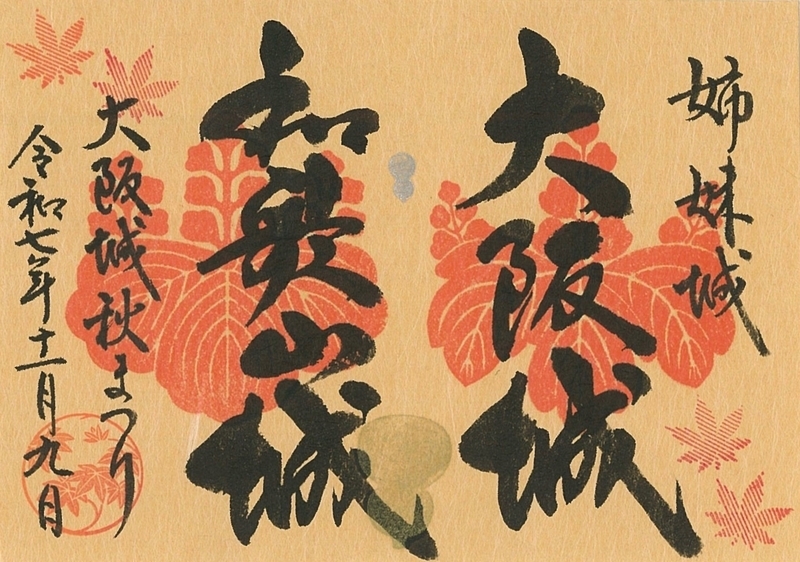 姉妹城
大阪城
和歌山城
大阪城秋まつり
令和七年十一月九日